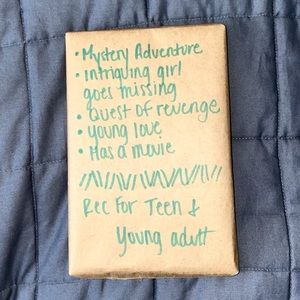 • Mystery Adventure
• intriguing girl
goes missing
• Quest of revenge
• young love
• Has a movie
Rec For Teen &
Young adult